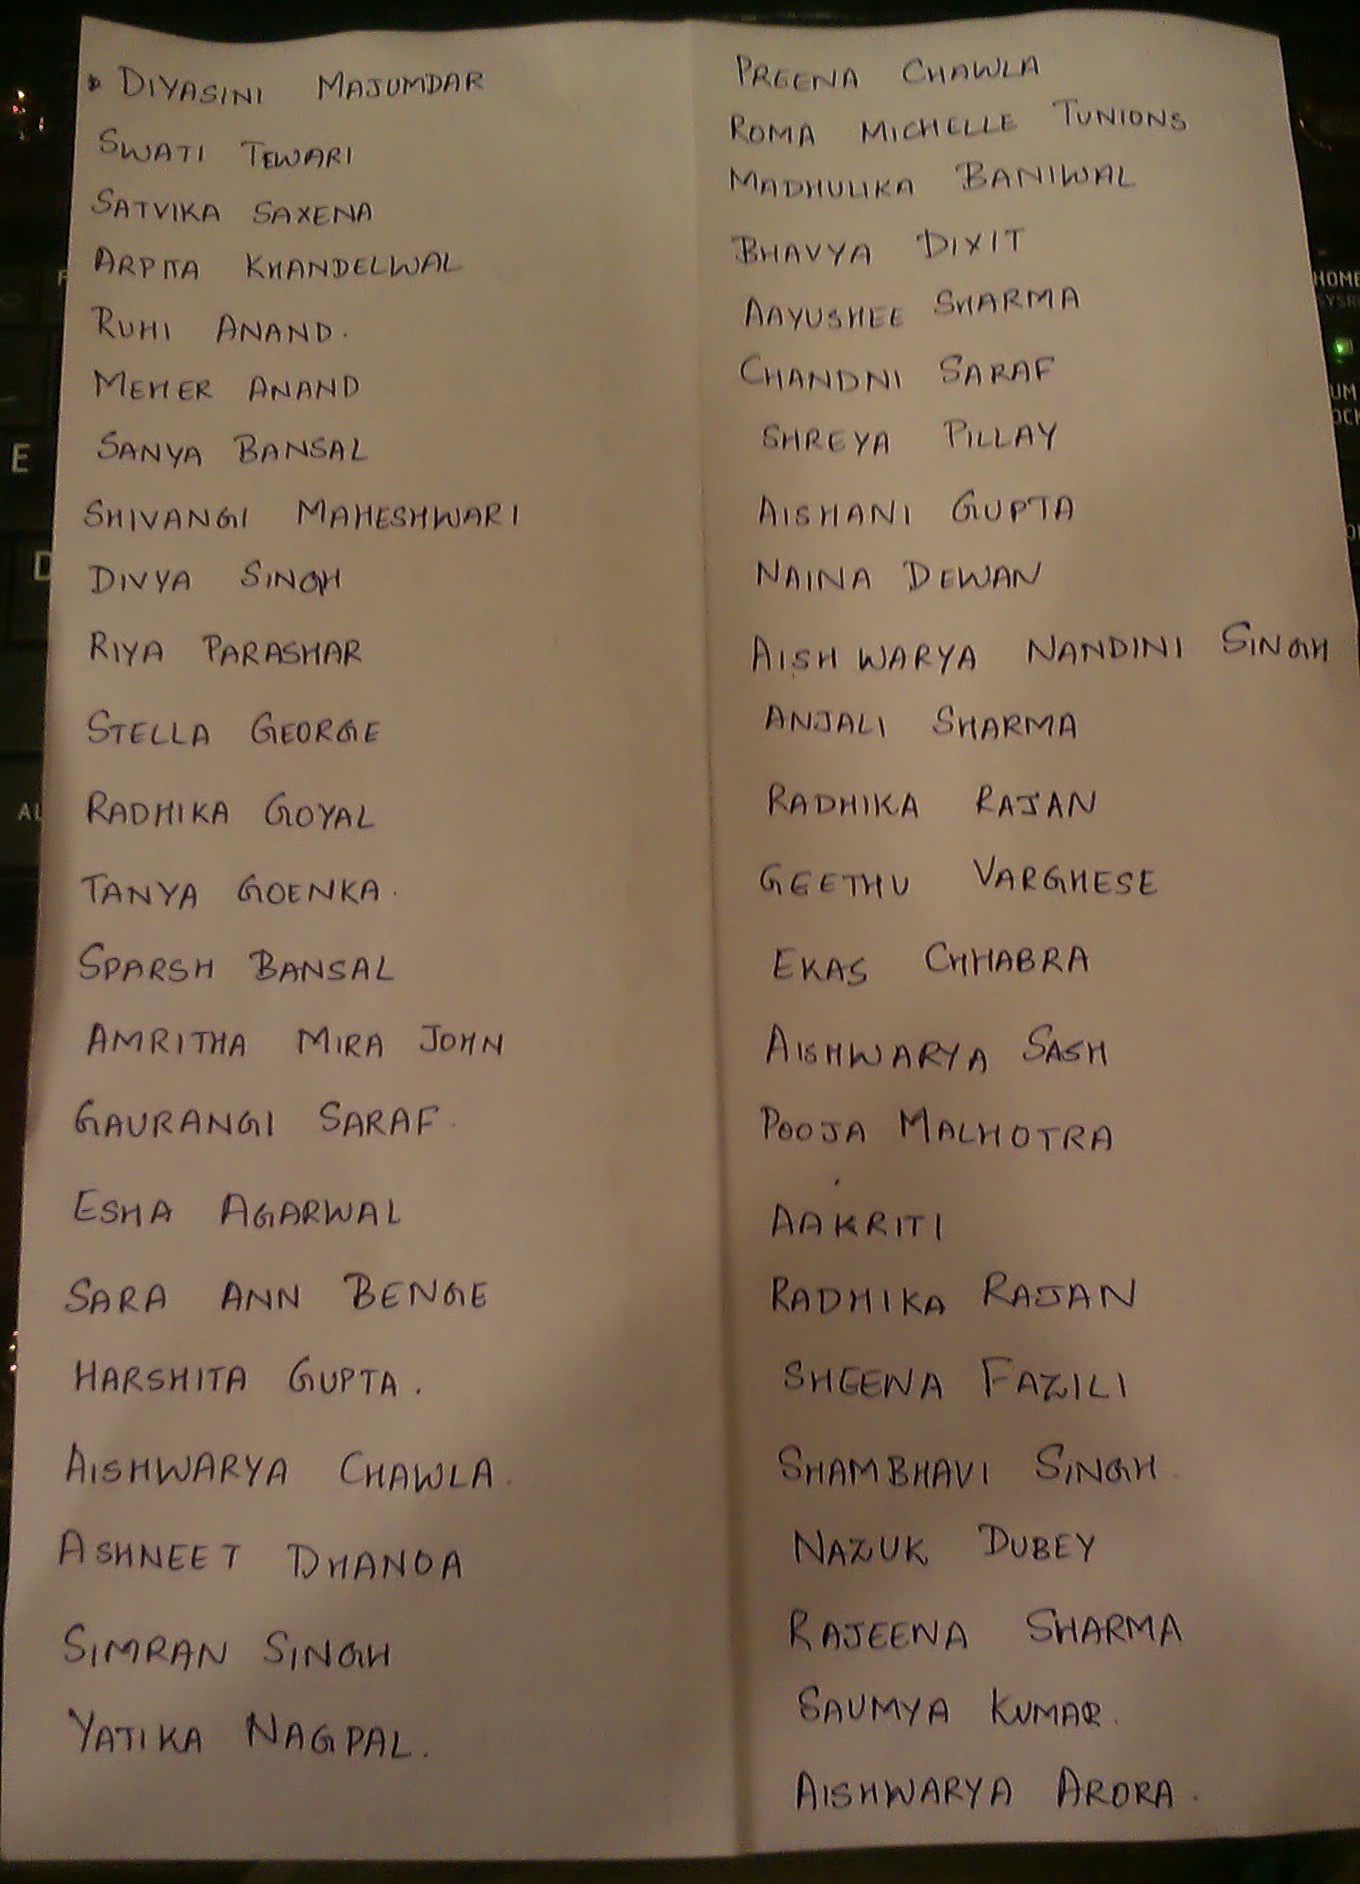 DIYASINI MAJUMDAR
SWATI TEWARI
SATVIKA SAXENA
ARPITA KHANDELWAL
RUHI ANAND.
MEHER ANAND
SANYA BANSAL
SHIVANGI MAHESHWARI
DIVYA SINGH
RIYA PARASHAR
STELLA GEORGE
RADHIKA GOYAL
TANYA GOENKA.
SPARSH BANSAL
AMRITHA MIRA JOHN
GAURANGI SARAF.
ESHA AGARWAL
SARA ANN BENGE
HARSHITA GUPTA.
AISHWARYA CHAWLA.
ASHNEET DHANOA
SIMRAN SINGH
YATIKA NAGPAL.
PREENA CHAWLA
ROMA MICHELLE TUNIONS
MADHULIKA BANIWAL
BHAVYA DIXIT
AAYUSHEE SHARMA
CHANDNI SARAF
SHREYA PILLAY
AISHANI GUPTA
NAINA DEWAN
AISHWARYA NANDINI SINGH
ANJALI SHARMA
RADHIKA RAJAN
GEETHU VARGHESE
EKAS CHHABRA
AISHWARYA SASH
POOJA MALHOTRA
AAKRITI
RADHIKA RAJAN
SHEENA FAZILI
SHAMBHAVI SINGH.
NAZUK DUBEY
RAJEENA SHARMA
SAUMYA KUMAR.
AISHWARYA ARORA.
E
D
HOME